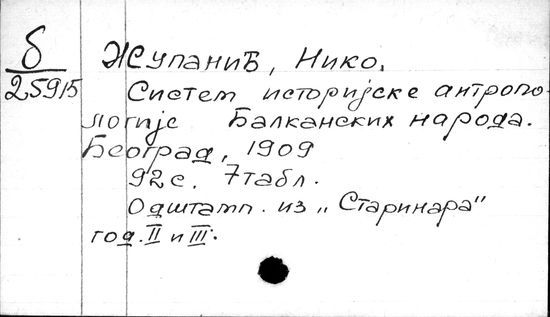 б
25915
Жупаниъ, Нико.
Систем историјске антропо-
логије Балканских народа.
Београд, 1909
92 с. 7 табл.
Одштамп. из „Старинара"
год. II и III.